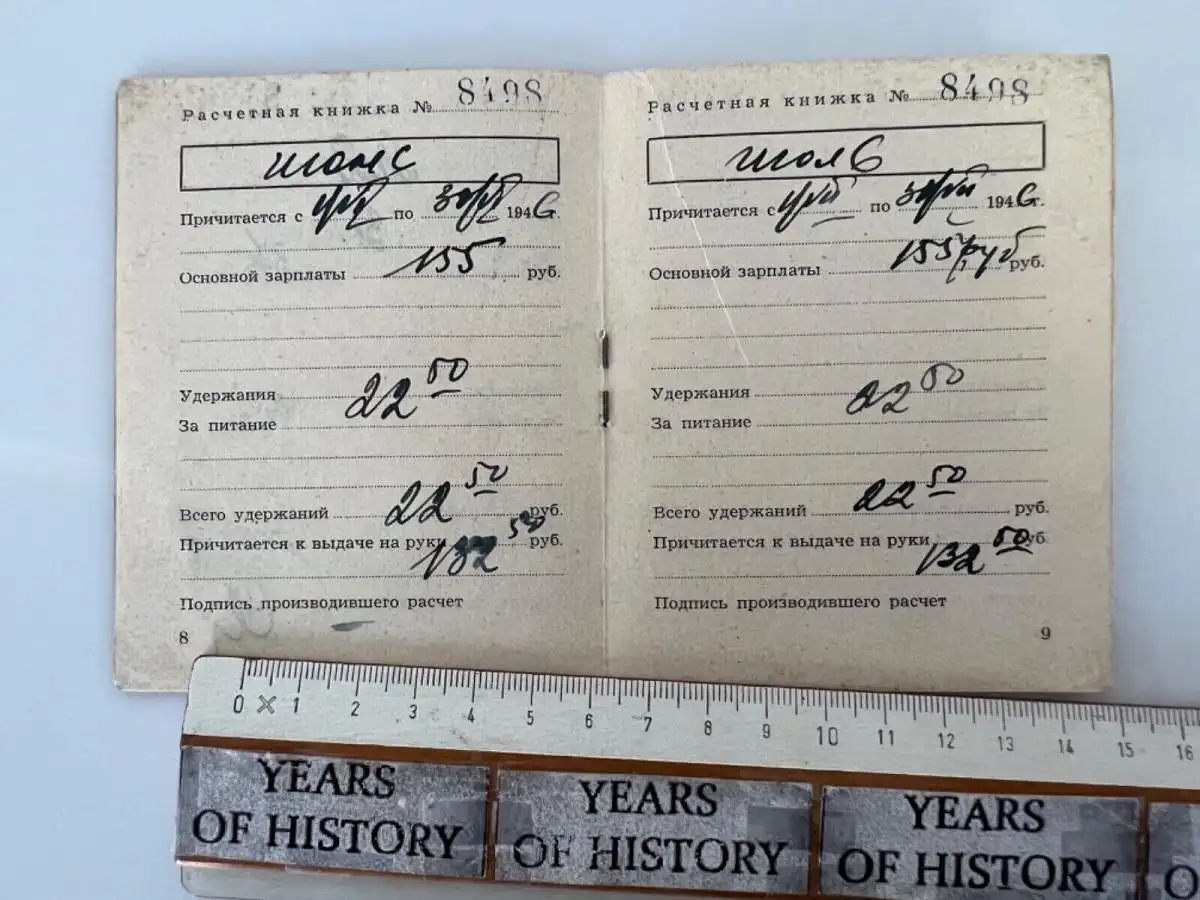 Расчетная книжка № 8498
июнь
Причитается с 1/VI по 30/VI 1946 г.
Основной зарплаты 155 руб.
Удержания
22 50
За питание
Всего удержаний 22 50 руб.
Причитается к выдаче на руки 132 50 руб.
Подпись производившего расчет
8
Расчетная книжка № 8498
июль
Причитается с 1/VII по 1946 г.
Основной зарплаты 155 руб руб.
Удержания
22 50
За питание
Всего удержаний 22 50 руб.
Причитается к выдаче на руки 132 50 руб
Подпись производившего расчет
9
0 1 2 3 4 5 6 7 8 9 10 11 12 13 14 15 16
YEARS
OF HISTORY
YEARS
OF HISTORY
YEARS
OF HISTORY